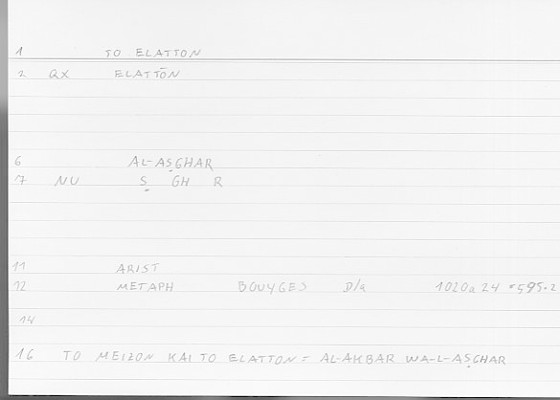 1 TO ELATTON
2 QX ELATTŌN
6 AL-AṢGHAR
7 NU Ṣ GH R
11 ARIST
12 METAPH BOUYGES 1020a24 595.2
14
16 TO MEIZON KAI TO ELATTON = AL-AKBAR WA-L-AṢGHAR